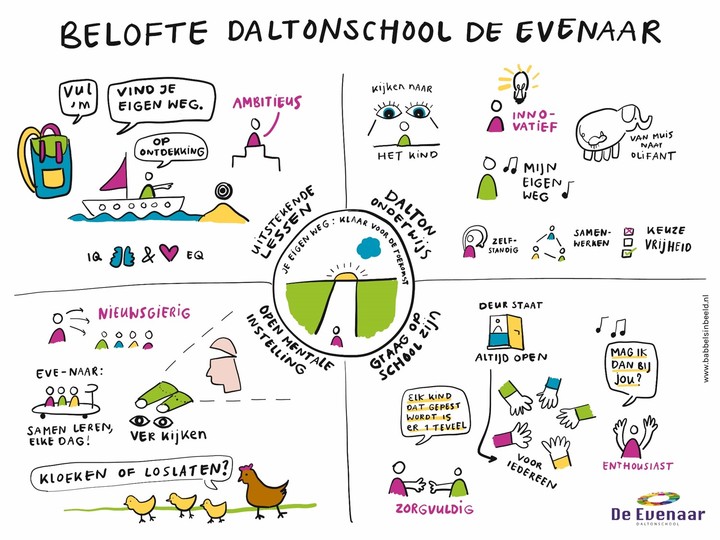 BELOFTE DALTONSCHOOL DE EVENAAR
VUL
'M
VIND JE
EIGEN WEG.
AMBITIEUS
OP
ONTDEKKING
IQ & EQ
UITSTEKENDE
LESSEN
Kijken naar
HET KIND
INNO-
VATIEF
VAN MUIS
NAAR
OLIFANT
MIJN
EIGEN
WEG
ZELF-
STANDIG
SAMEN-
WERKEN
KEUZE
VRIJHEID
DALTON
ONDERWIJS
JE EIGEN WEG: KLAAR VOOR DE TOEKOMST
NIEUWSGIERIG
EVE-NAAR:
SAMEN LEREN,
ELKE DAG!
VER Kijken
KLOEKEN OF LOSLATEN?
OPEN MENTALE
INSTELLING
GRAAG OP
SCHOOL ZIJN
DEUR STAAT
ALTIJD OPEN
ELK KIND
DAT GEPEST
WORDT IS
ER 1 TEVEEL
ZORGVULDIG
VOOR
IEDEREEN
MAG IK
DAN BIJ
JOU?
ENTHOUSIAST
De Evenaar
DALTONSCHOOL
www.babbelsinbeeld.nl